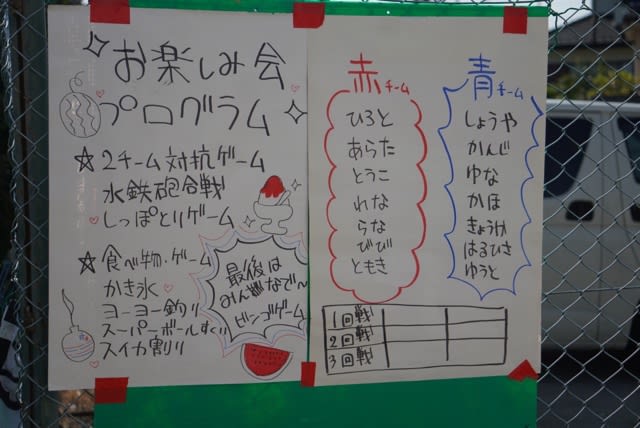 お楽しみ会
プログラム
★2チーム対抗ゲーム
水鉄砲合戦
しっぽとりゲーム
★食べ物・ゲーム
かき氷
ヨーヨー釣り
スーパーボールすくい
スイカ割り
最後は
みんなで〜
ビンゴゲーム
赤チーム
ひろと
あらた
とうこ
れな
らな
びび
ともき
青チーム
しょうや
かんじ
ゆな
かほ
きょうか
はるひさ
ゆうと
1回戦
2回戦
3回戦